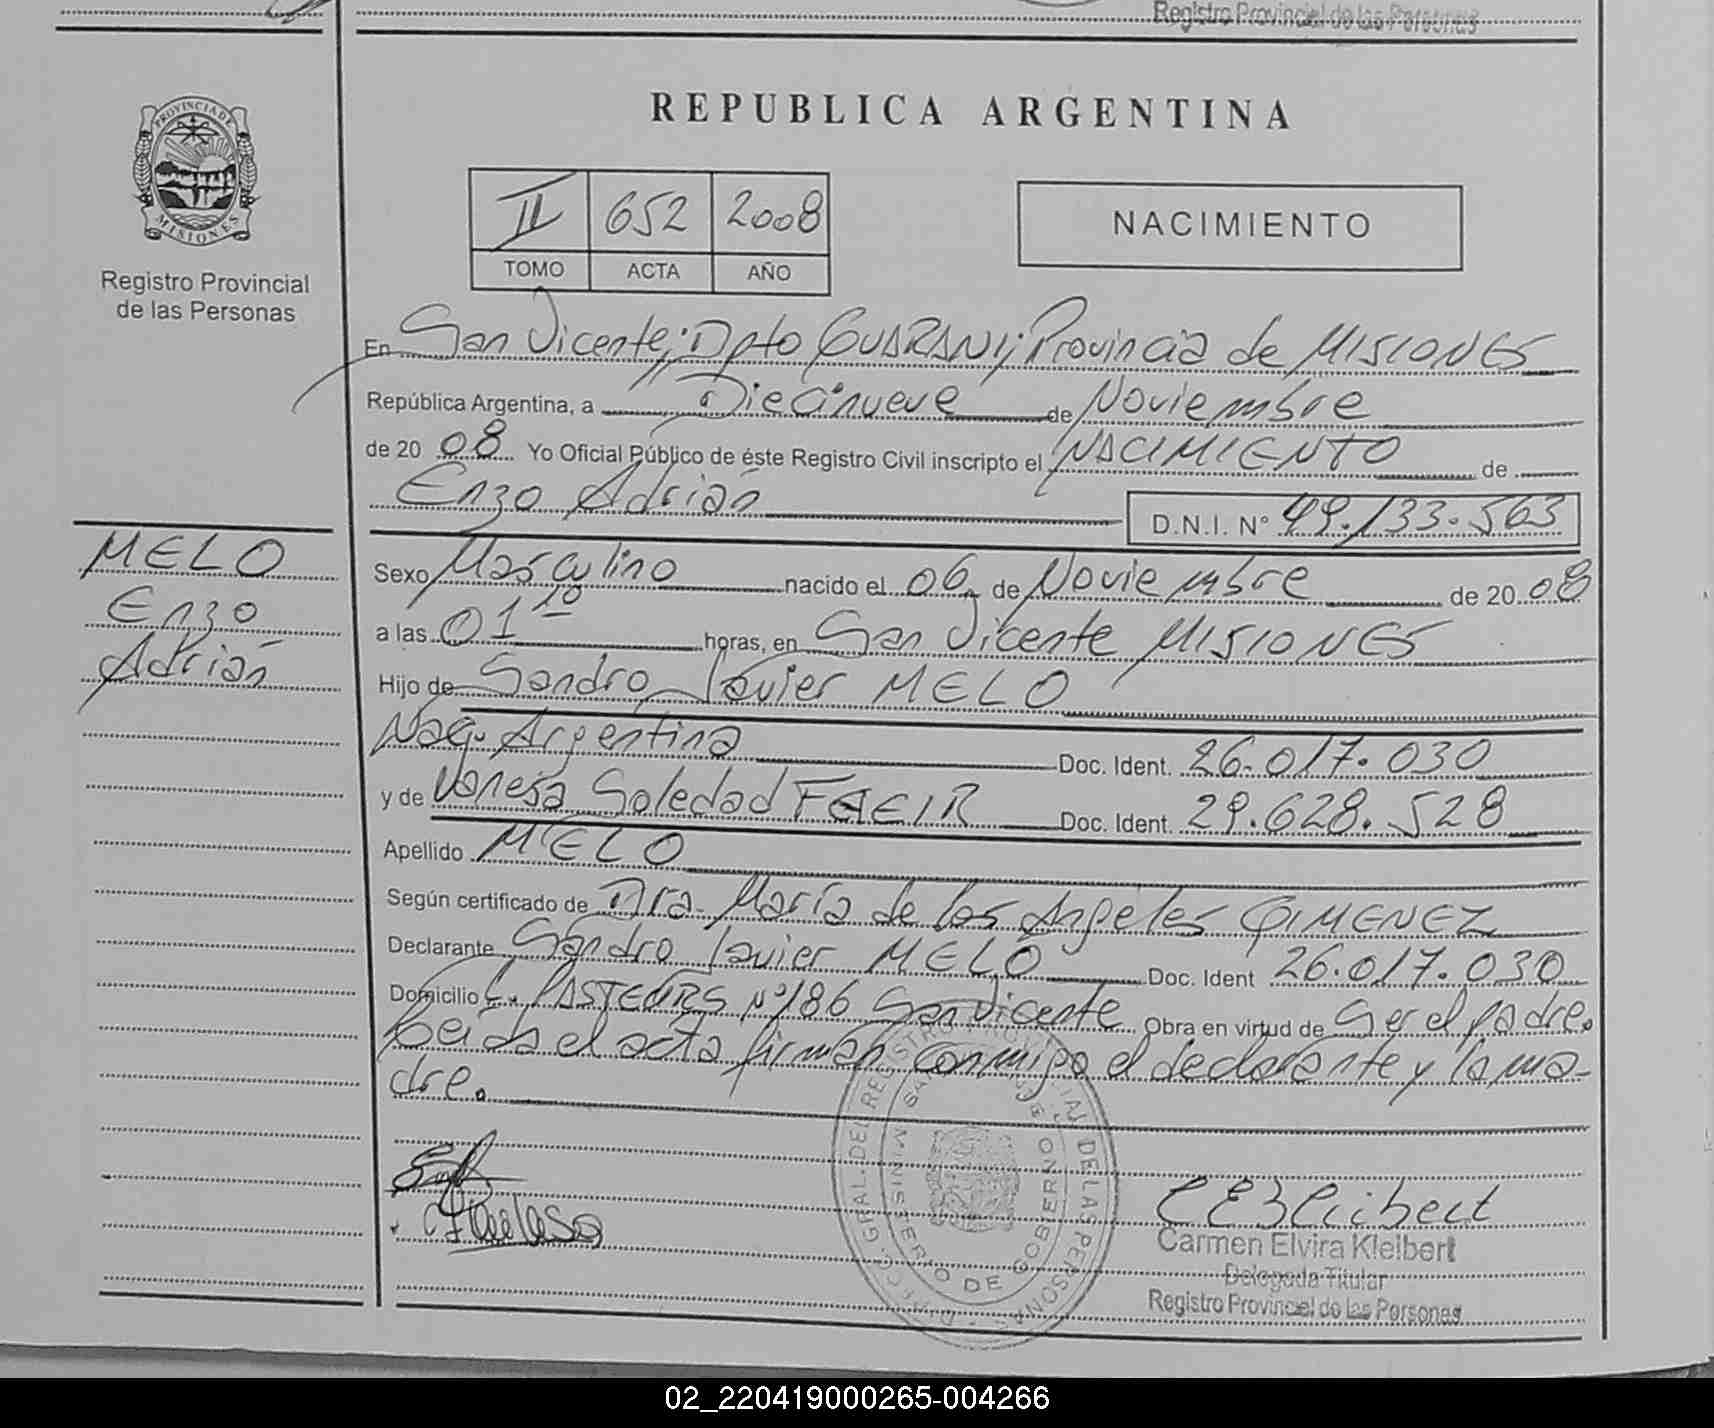 Registro Provincial de las Personas
PROVINCIA DE
MISIONES
Registro Provincial
de las Personas
REPUBLICA ARGENTINA
II 652 2008
TOMO ACTA AÑO
NACIMIENTO
En San Vicente, Dpto GUARANI, Provincia de MISIONES
República Argentina, a Diecinueve de Noviembre
de 20 08 Yo Oficial Público de éste Registro Civil inscripto el NACIMIENTO de
Enzo Adrián D.N.I. N° 49.133.563
MELO
Enzo
Adrián
Sexo Masculino nacido el 06 de Noviembre de 20 08
a las 01 10 horas, en San Vicente MISIONES
Hijo de Sandro Javier MELO
Nac. Argentina Doc. Ident. 26.017.030
y de Vanesa Soledad Doc. Ident. 29.628.528
Apellido MELO
Según certificado de Dra. María de los Angeles GIMENEZ
Declarante Sandro Javier MELO Doc. Ident 26.017.030
Domicilio L. PASTEURS N° 186 San Vicente Obra en virtud de Ser el padre.
Leida el acta firman conmigo el declarante y la ma-
dre.
DIRECC. GRAL. DEL REGISTRO PROVINCIAL DE LAS PERSONAS
MINISTERIO DE GOBIERNO
Carmen Elvira Kleibert
Delegada Titular
Registro Provincial de las Personas
02_220419000265-004266